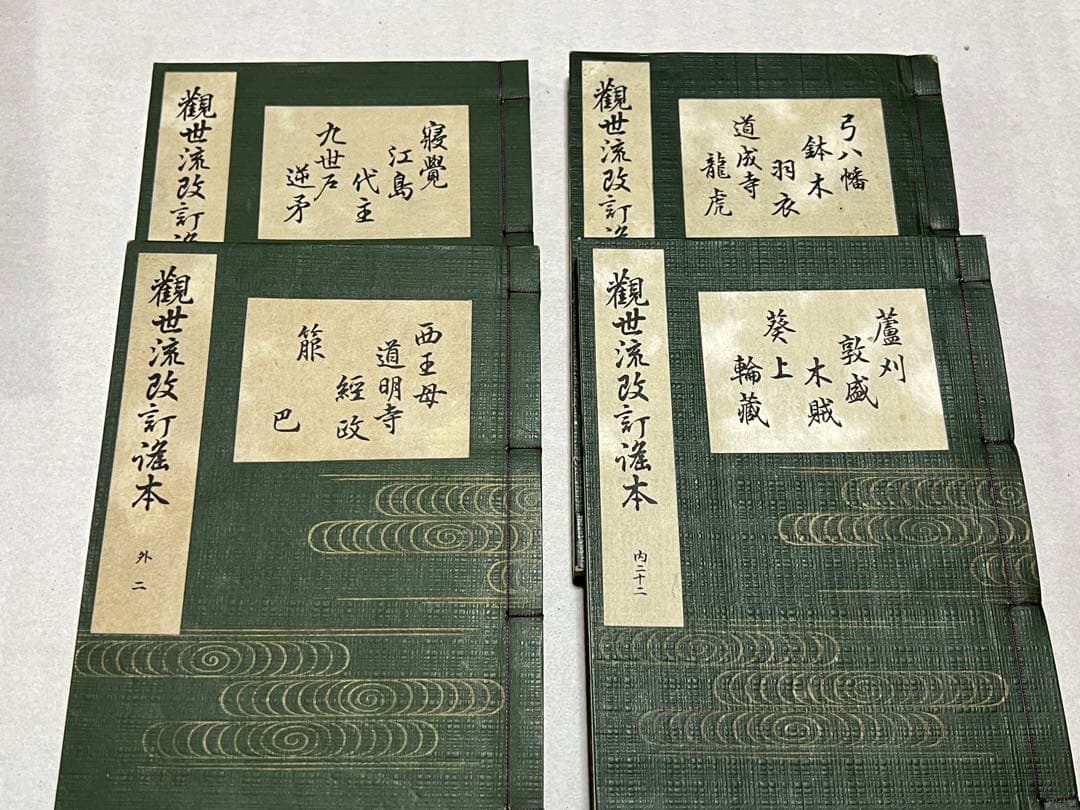 寝覺
江島
代主
九世戸
逆矛
觀世流改訂
弓八幡
鉢木
羽衣
道成寺
龍虎
觀世流改訂
西王母
道明寺
經政
箙
巴
觀世流改訂謠本
外二
蘆刈
敦盛
木賊
葵上
輪藏
觀世流改訂謠本
内二十二